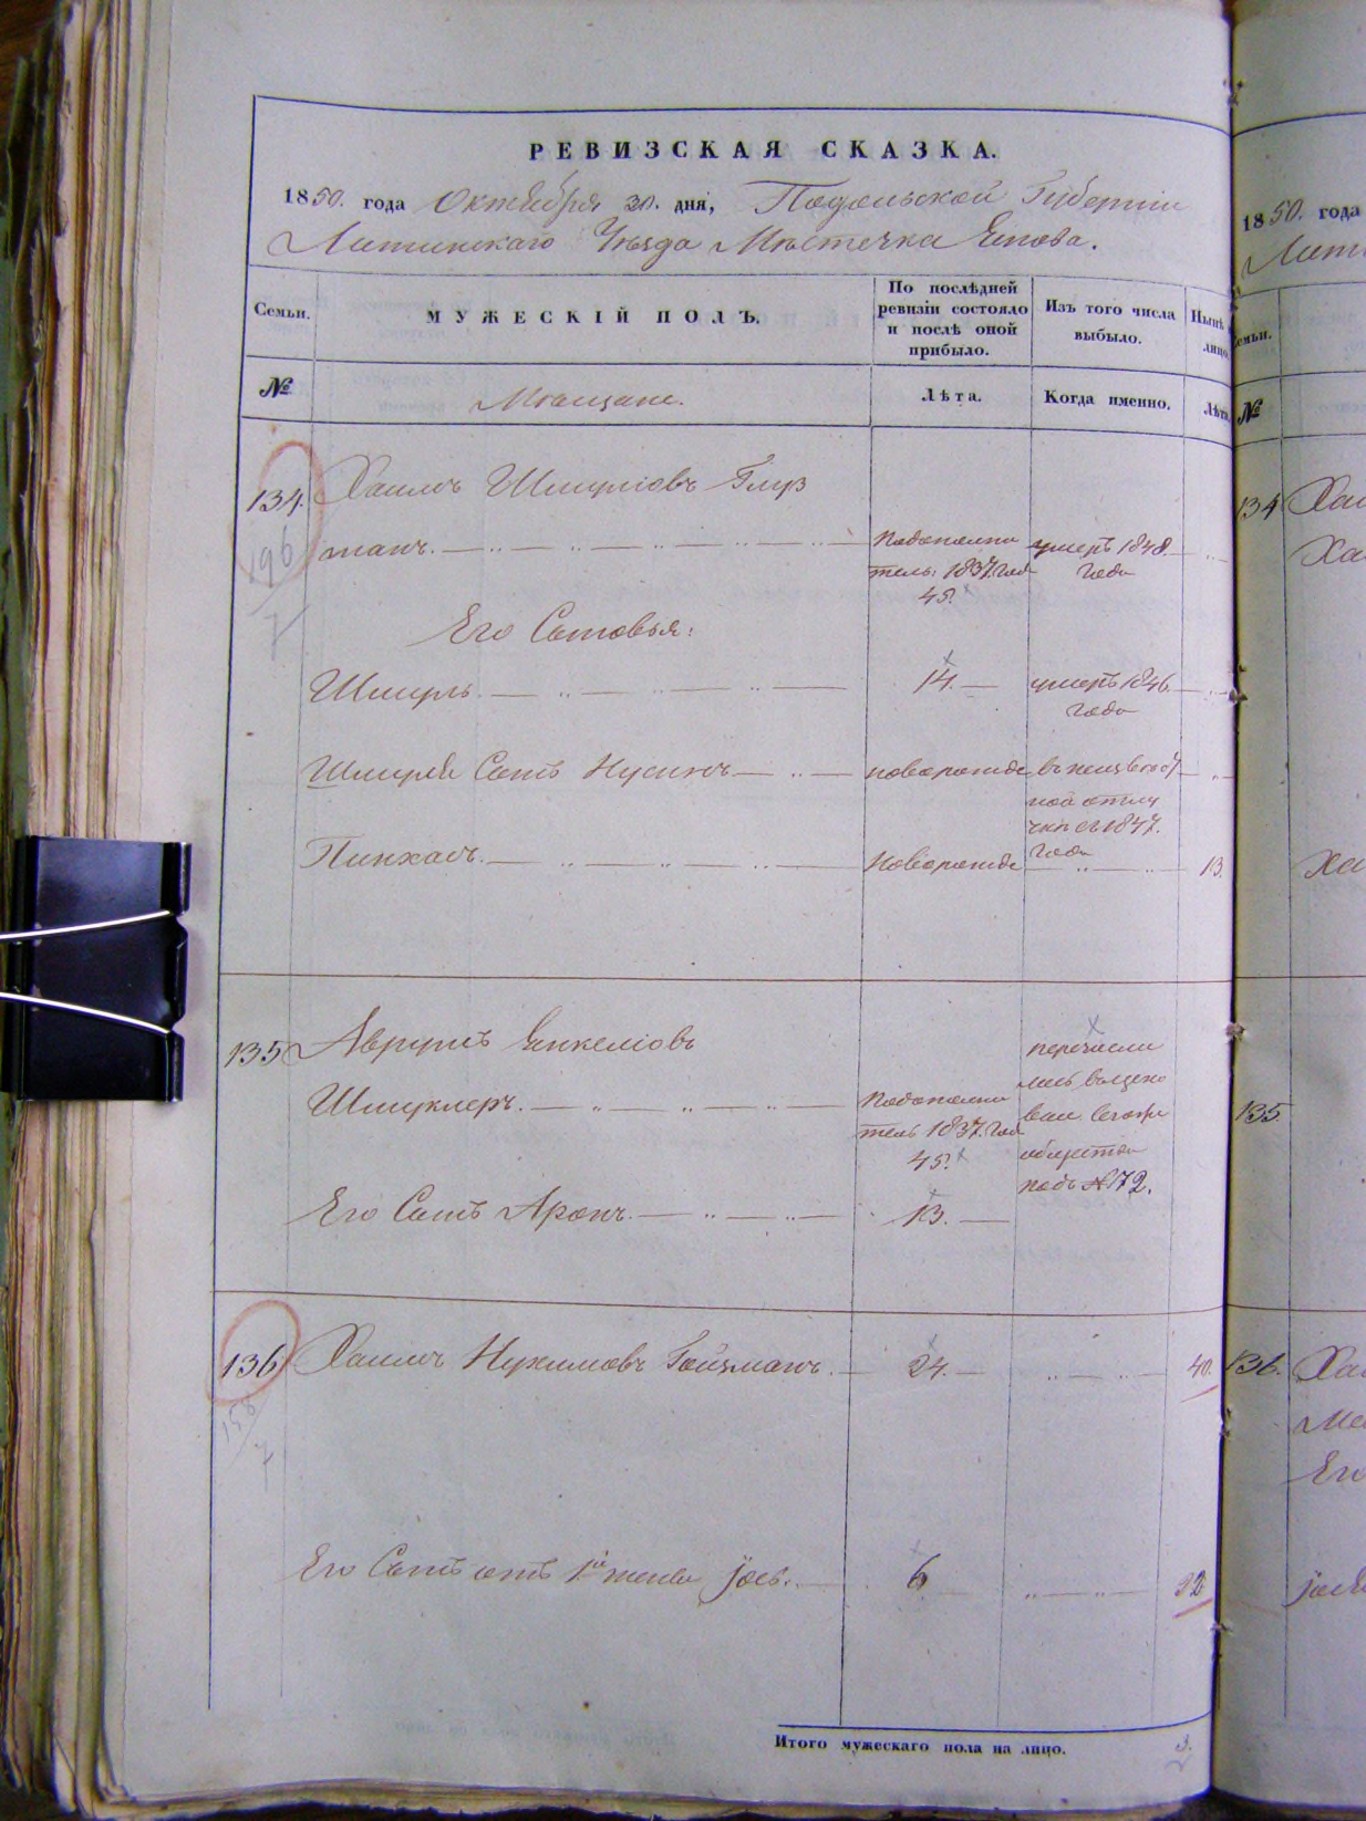 РЕВИЗСКАЯ СКАЗКА.
1850. года Октября 30. дня, Подольской Губернии
Литинскаго Уѣзда Мѣстечка Янова.
Семьи.
МУЖЕСКІЙ ПОЛЪ.
По послѣдней ревизіи состояло и послѣ оной прибыло.
Изъ того числа выбыло.
Нынѣ
лицо
№
Мѣщане.
Лѣта.
Когда именно.
Лѣта
134. Хаимъ Шмуліовъ Глуз
манъ.
Пополни
тель: 1837. года
45.
умеръ 1848.
года
196
7
Его Сыновья:
Шмуль 14. умеръ 1846.
года
Шмуля Сынъ Нусинъ новорожде въ неизвѣст
ной отлу
чкѣ съ 1847.
года
Пинхасъ. новорожде 13.
135 Аврумъ Янкеліовъ
Шмуклеръ.
Пополни
тель 1837. года
45.
перечисле
подъ №172.
Его Сынъ Аронъ. 13.
136 Хаимъ Нухимовъ Гойзманъ. 24. 40.
7
Его Сынъ отъ 1й жены Іось. 6 22
Итого мужескаго пола на лицо. 3.
1850. года
Лит
Семьи.
№
134 Хаи
Ха
Ха
135
136. Хаи
Его